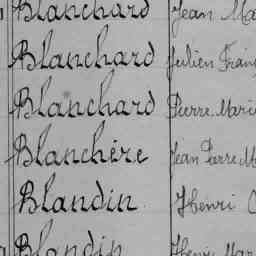 Blanchard Jean Ma
Blanchard Julien Fran
Blanchard Pierre Marie
Blanchère Jean Pierre M
Blandin Henri
Blandin Henri Mar